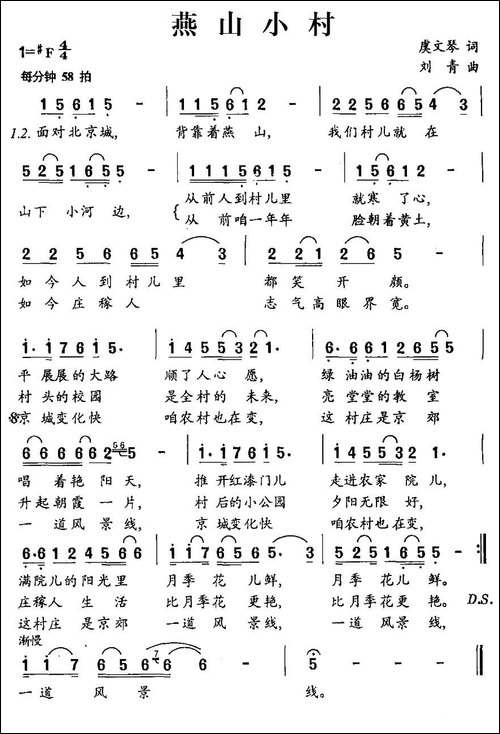 燕山小村
1=#F 4/4
虞文琴 词
每分钟 58 拍
刘青 曲
1 5 6 1 5 - | 1 1 5 6 1 2 - | 2 2 5 6 6 5 4 3 |
1.2. 面对北京城, 背靠着燕山, 我们村儿就在
5 2 5 1 6 5 5 - | 1 1 1 5 6 1 5 - | 1 5 6 1 2 - |
从前人到村儿里 就寒了心,
山下小河边, { 从前咱一年年 脸朝着黄土,
2 2 5 6 6 5 4 3 | 2 2 5 1 6 5 5 - |
如今人到村儿里 都笑开颜。
如今庄稼人 志气高眼界宽。
1· 1 7 6 1 5· | 1 4 5 5 3 2 1· | 6· 6 6 1 2 6 5 5 |
平展展的大路 顺了人心愿, 绿油油的白杨树
村头的校园 是全村的未来, 亮堂堂的教室
京城变化快 咱农村也在变, 这村庄是京郊
6 6 6 6 6 6 2 5 6 5· | 1· 1 7 6 1 5· | 1 4 5 5 3 2 1· |
唱着艳阳天, 推开红漆门儿 走进农家院儿,
升起朝霞一片, 村后的小公园 夕阳无限好,
一道风景线, 京城变化快 咱农村也在变,
6·6 1 2 2 4 5 6 6 | 1 1 7 6 5 6 1 1 | 5 2 5 1 6 5 5 - :‖
满院儿的阳光里 月季花儿鲜, 月季花儿鲜。
庄稼人生活 比月季花更艳, 比月季花更艳。 D.S.
这村庄是京郊 一道风景线, 一道风景线。
渐慢
1 1 7 6 5 6 7 6 6 | 6 - - - | 5 - - - ‖
一道风景线。